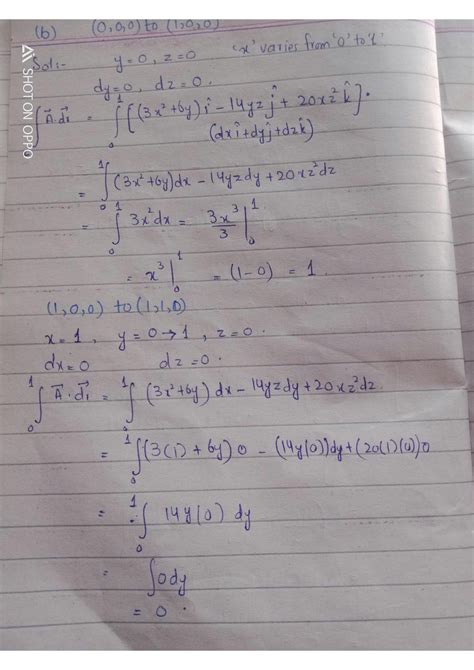 (b) (0,0,0) to (1,0,0)
Sol:- y=0, z=0 'x' varies from '0' to '1'
dy=0, dz=0.
∫ A⃗.dl⃗ = ∫₀¹ [(3x²+6y)î - 14yz ĵ + 20xz² k̂].
(dxî+dyĵ+dzk̂)
= ∫₀¹ (3x²+6y)dx - 14yzdy + 20xz²dz
= ∫₀¹ 3x²dx = 3x³/3 |₀¹
= x³|₀¹ = (1-0) = 1.
(1,0,0) to (1,1,0)
x=1, y=0→1, z=0.
dx=0 dz=0.
∫₀¹ A⃗.dl⃗ = ∫₀¹ (3x²+6y)dx - 14yzdy + 20xz²dz.
= ∫₀¹ (3(1)+6y)0 - (14y(0))dy + (20(1)(0))0
= ∫₀¹ 14y(0) dy
= ∫0dy
= 0.
SHOT ON OPPO